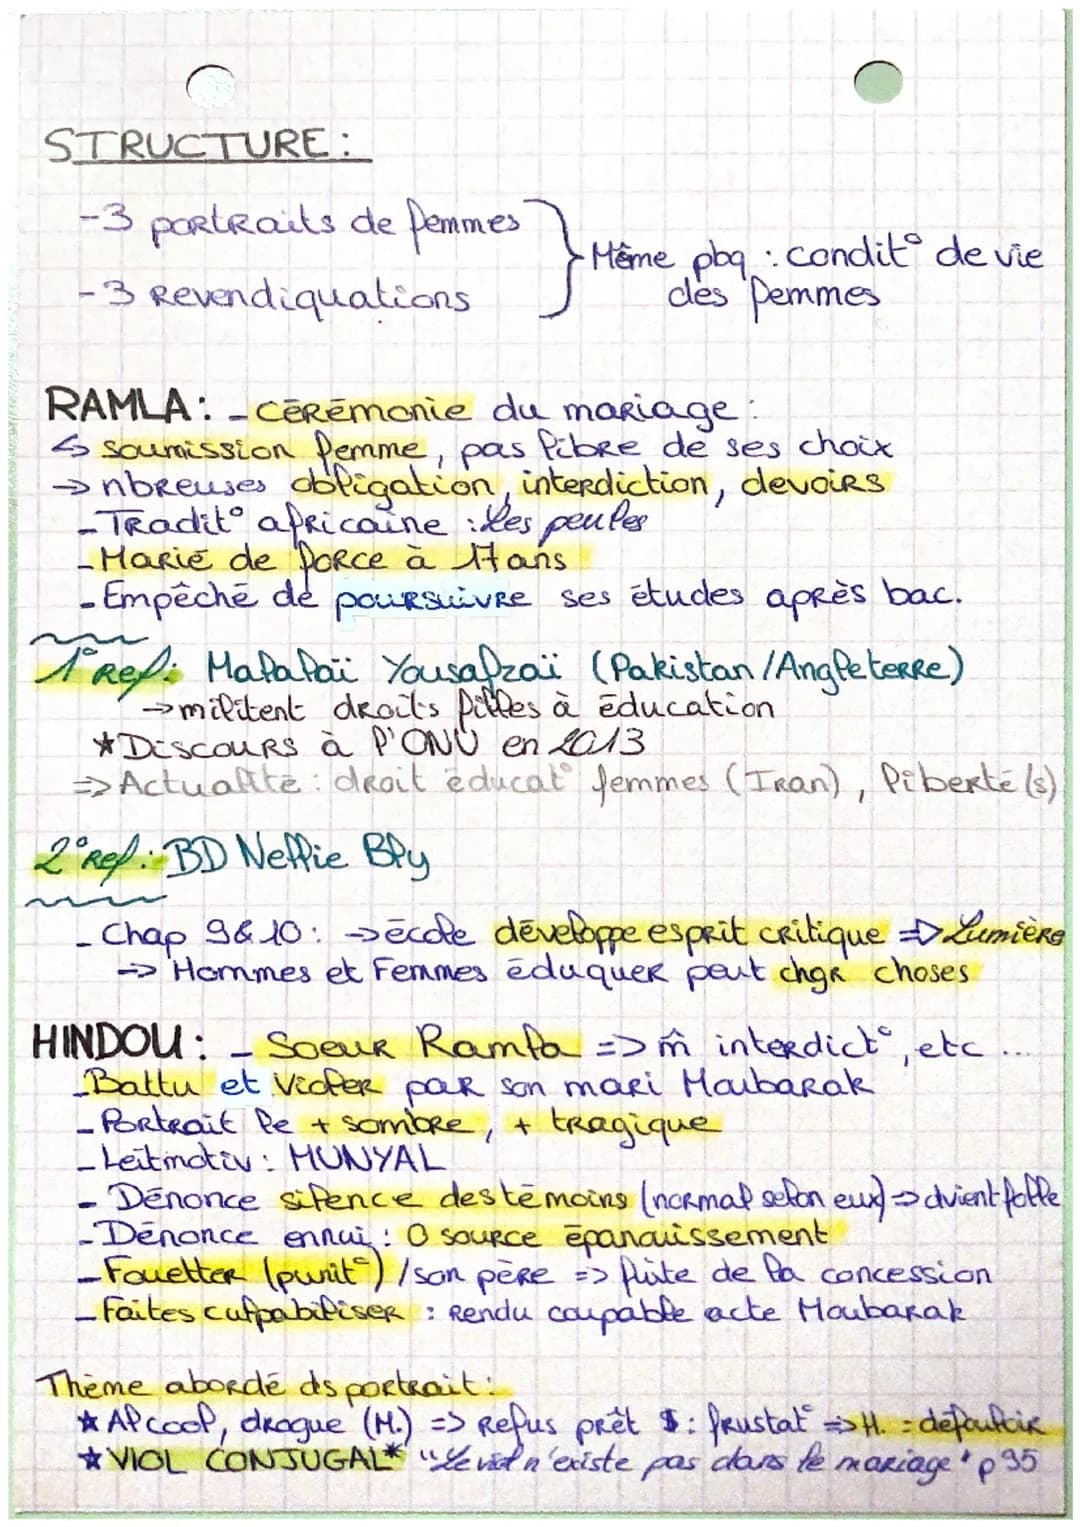 STRUCTURE :
-3 portraits de femmes
-3 Revendiquations
Même pbq : condit° de vie
des femmes
RAMLA : - cérémonie du mariage :
↳ soumission femme, pas libre de ses choix
→ nbreuses obligation, interdiction, devoirs
- Tradit° africaine : les peules
- Marié de force à 17 ans
- Empêché de poursuivre ses études après bac.
1° Ref : Malalaï Yousafzaï (Pakistan / Angleterre)
→ militent droits filles à éducation
* Discours à l'ONU en 2013
=> Actualité : droit éducat° femmes (Iran), liberté(s)
2° Ref : BD Nellie Bly
- Chap 9 & 10 : → école développe esprit critique => Lumière
-> Hommes et Femmes éduquer peut chgr choses
HINDOU : - Soeur Ramla => m̂ interdict°, etc ...
- Battu et Violer par son mari Moubarak
- Portrait le + sombre, + tragique
- Leitmotiv : MUNYAL
- Dénonce silence des témoins (normal selon eux) => dvient folle
- Dénonce ennui : 0 source épanouissement
- Fouetter (punit°) / son père => fuite de la concession
- Faites culpabiliser : Rendu coupable acte Moubarak
Thème abordé ds portrait :
* Alcool, drogue (M.) => Refus prêt $ : frustat° => H. = défouloir
* VIOL CONJUGAL* "Le viol n'existe pas dans le mariage" p 95